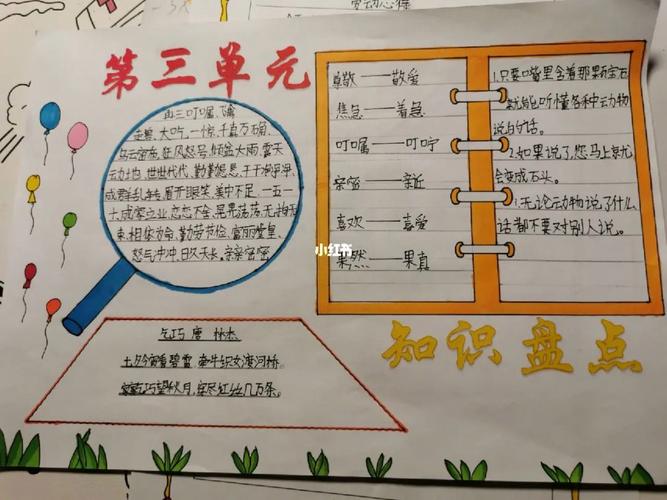 劳动心得
第三单元
再三叮嘱、隐
走兽、大吃一惊、千真万确、
乌云密布、狂风怒号、倾盆大雨、震天
动地、世世代代、
成群乱转、眉开眼笑、美中不足、一五一
十、成家立业、恋恋不舍、无拘无
束、相依为命、勤劳节俭、富丽堂皇、
怒气冲冲、日久天长、亲亲密密
尊敬——敬爱
焦急——着急
叮嘱——叮咛
亲密——亲近
喜欢——喜爱
果然——果真
1.只要嘴里含着那颗宝石
就能听懂各种动物
说的话。
2.如果说了,您马上就
会变成石头。
无论动物说了什么
话都不要对别人说。
小红书
乞巧 唐 林杰
七夕今宵看碧霄,牵牛织女渡河桥。
家家乞巧望秋月,穿尽红丝几万条。
知识盘点